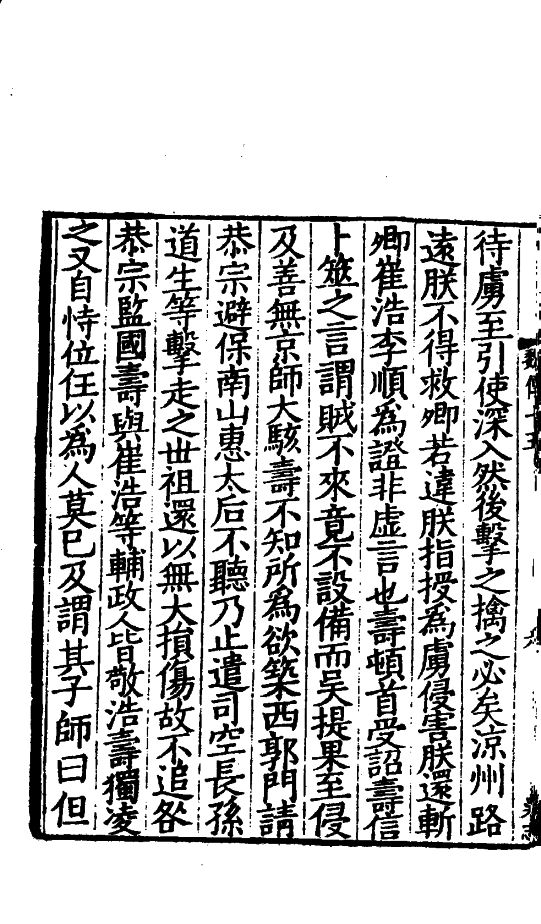 待虜至引使深入然後擊之擒之必矣涼州路
遠朕不得救卿若違朕指授為虜侵害朕還斬
卿崔浩李順為證非虛言也壽頓首受詔壽信
卜筮之言謂賊不來竟不設備而吳提果至侵
及善無京師大駭壽不知所為欲築西郭門請
恭宗避保南山惠太后不聽乃止遣司空長孫
道生等擊走之世祖還以無大損傷故不追咎
恭宗監國壽與崔浩等輔政人皆敬浩壽獨凌
之又自恃位任以為人莫已及謂其子師曰但